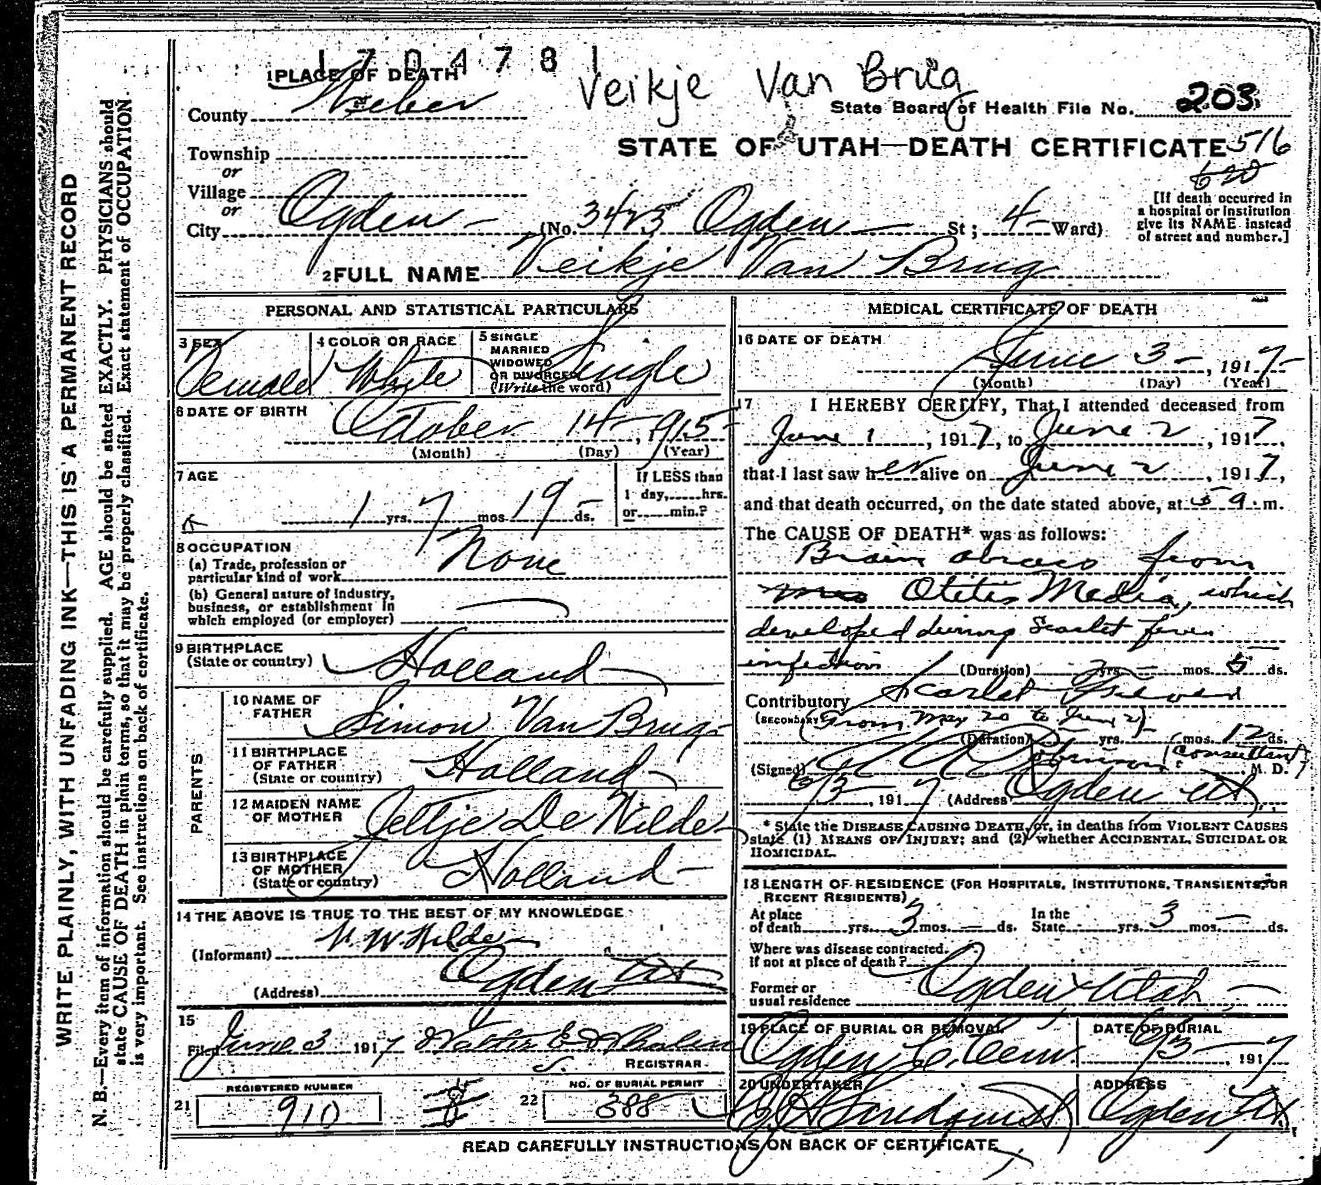 1 7 0 4 7 8 1
Veikje Van Brug
1 PLACE OF DEATH
County Weber
State Board of Health File No. 203
Township
or
Village
or
STATE OF UTAH—DEATH CERTIFICATE 516
620
City Ogden (No. 3425 Ogden St; 4 Ward)
[If death occurred in
a hospital or institution
give its NAME instead
of street and number.]
2 FULL NAME Veikje Van Brug
PERSONAL AND STATISTICAL PARTICULARS
3 SEX
Female
4 COLOR OR RACE
White
5 SINGLE
MARRIED
WIDOWED
OR DIVORCED
(Write the word)
Single
6 DATE OF BIRTH
October 14, 1915
(Month) (Day) (Year)
7 AGE
1 yrs. 7 mos. 19 ds.
If LESS than
1 day, hrs.
or min.?
8 OCCUPATION
(a) Trade, profession or
particular kind of work None
(b) General nature of industry,
business, or establishment in
which employed (or employer)
9 BIRTHPLACE
(State or country) Holland
PARENTS
10 NAME OF
FATHER Simon Van Brug
11 BIRTHPLACE
OF FATHER
(State or country) Holland
12 MAIDEN NAME
OF MOTHER Jeltje De Wilde
13 BIRTHPLACE
OF MOTHER
(State or country) Holland
14 THE ABOVE IS TRUE TO THE BEST OF MY KNOWLEDGE
(Informant) Wilde
(Address) Ogden Ut
15
Filed June 3 1917 Walter E Whalen
REGISTRAR
REGISTERED NUMBER
21 910
8
NO. OF BURIAL PERMIT
22 388
MEDICAL CERTIFICATE OF DEATH
16 DATE OF DEATH
June 3, 1917
(Month) (Day) (Year)
17 I HEREBY CERTIFY, That I attended deceased from
June 1, 1917, to June 2, 1917,
that I last saw her alive on June 2, 1917,
and that death occurred, on the date stated above, at 5 a. m.
The CAUSE OF DEATH* was as follows:
Brain abscess from
Otitis Media, which
developed during Scarlet fever
infection (Duration) yrs. mos. 5 ds.
Contributory Scarlet Fever
(SECONDARY) (from May 20 to June 2)
(Duration) yrs. mos. 12 ds.
(Signed) Robinson (Consultant) M. D.
6/3, 1917 (Address) Ogden Ut
* State the DISEASE CAUSING DEATH, or, in deaths from VIOLENT CAUSES
state (1) MEANS OF INJURY; and (2) whether ACCIDENTAL, SUICIDAL OR
HOMICIDAL.
18 LENGTH OF RESIDENCE (FOR HOSPITALS, INSTITUTIONS, TRANSIENTS, OR
RECENT RESIDENTS)
At place
of death yrs. 3 mos. ds.
In the
State yrs. 3 mos. ds.
Where was disease contracted.
If not at place of death?
Former or
usual residence Ogden Utah
19 PLACE OF BURIAL OR REMOVAL
Ogden C. Cem.
DATE OF BURIAL
6/3, 1917
20 UNDERTAKER
Lindquist
ADDRESS
Ogden, Ut
READ CAREFULLY INSTRUCTIONS ON BACK OF CERTIFICATE
WRITE PLAINLY, WITH UNFADING INK—THIS IS A PERMANENT RECORD
N. B.—Every item of information should be carefully supplied. AGE should be stated EXACTLY. PHYSICIANS should
state CAUSE OF DEATH in plain terms, so that it may be properly classified. Exact statement of OCCUPATION
is very important. See instructions on back of certificate.